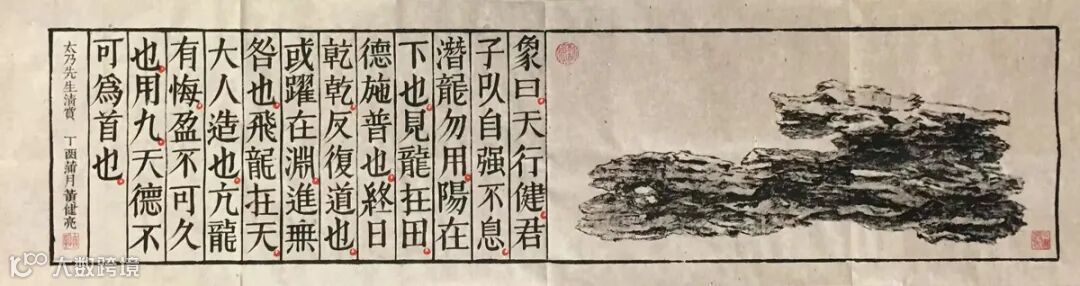 象曰天行健君
子以自强不息
潛龍勿用陽在
下也見龍在田
德施普也終日
乾乾反復道也
或躍在淵進無
咎也飛龍在天
大人造也亢龍
有悔盈不可久
也用九天德不
可為首也
太乃先生清賞 丁酉蒲月黄健亮
大数跨境